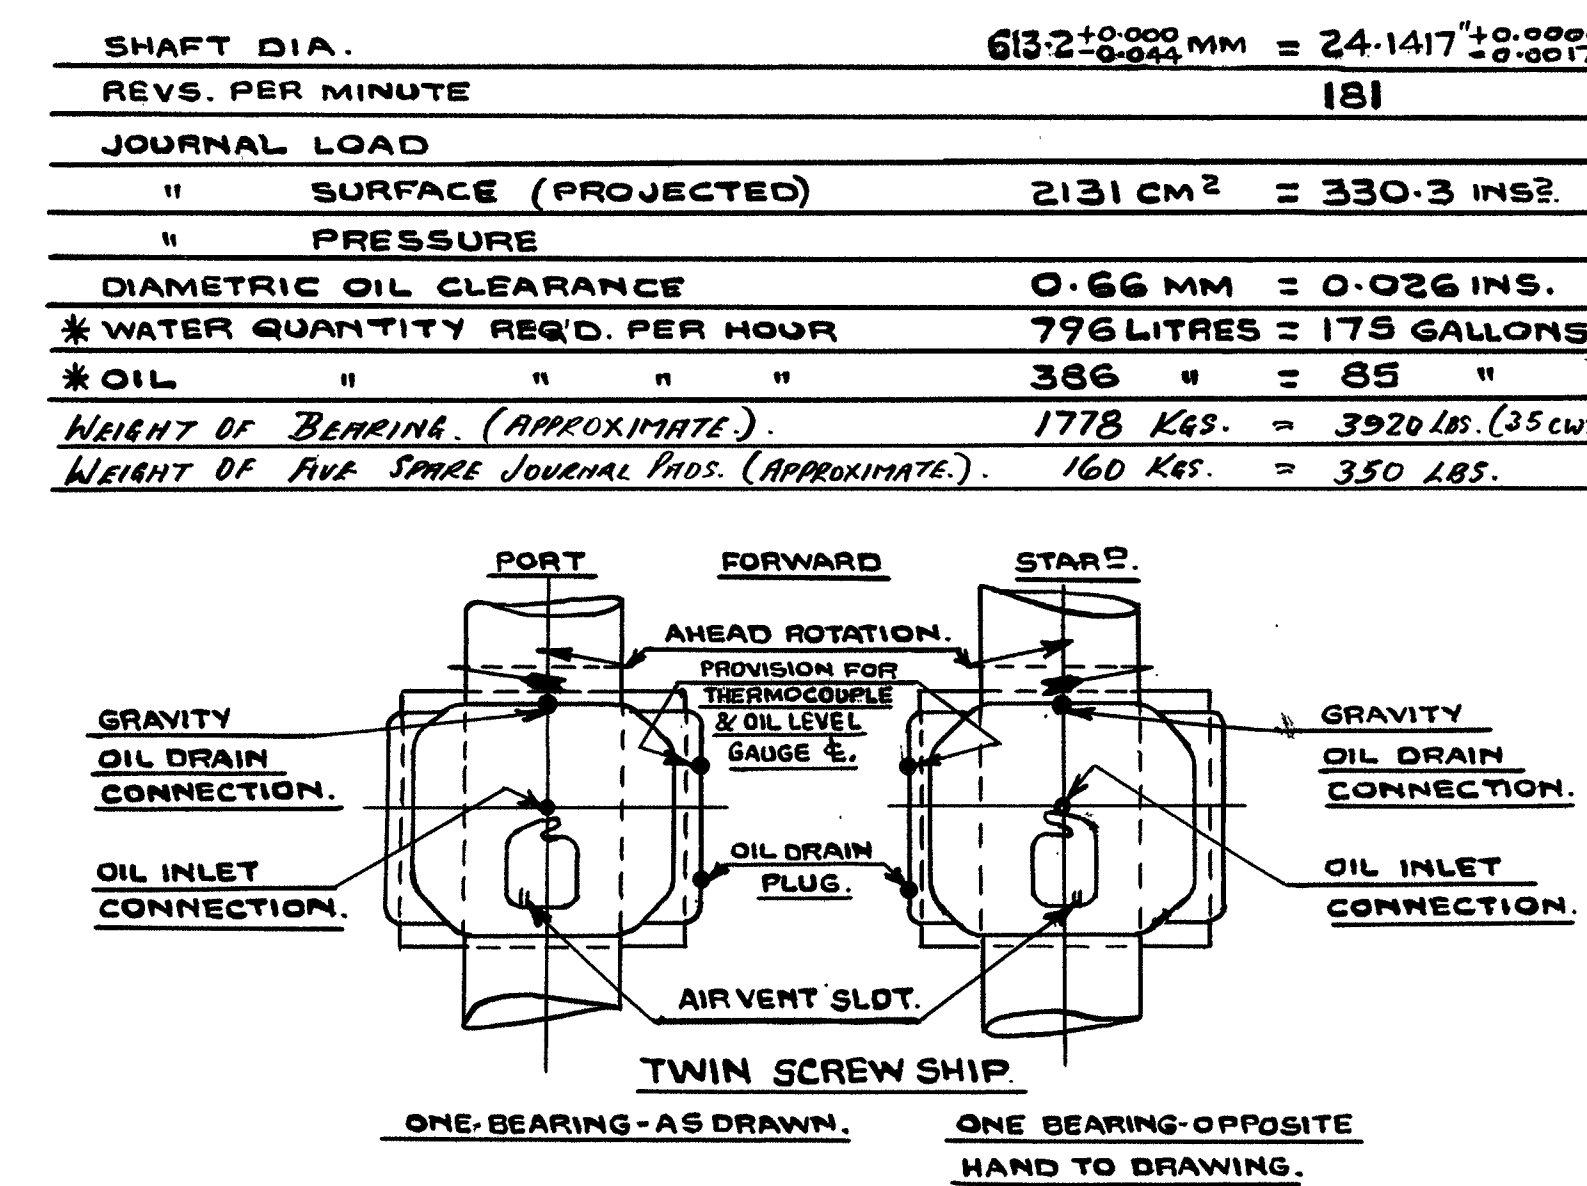 SHAFT DIA. 613.2 +0.000 -0.044 MM = 24.1417" +0.000 -0.0017
REVS. PER MINUTE 181
JOURNAL LOAD
" SURFACE (PROJECTED) 2131 CM² = 330.3 INS².
" PRESSURE
DIAMETRIC OIL CLEARANCE 0.66 MM = 0.026 INS.
* WATER QUANTITY REQ'D. PER HOUR 796 LITRES = 175 GALLONS
* OIL " " " " 386 " = 85 "
WEIGHT OF BEARING. (APPROXIMATE.). 1778 KGS. = 3920 LBS. (35 CWT
WEIGHT OF FIVE SPARE JOURNAL PADS. (APPROXIMATE.). 160 KGS. = 350 LBS.
PORT FORWARD STARD.
AHEAD ROTATION.
PROVISION FOR
THERMOCOUPLE
& OIL LEVEL
GAUGE ℄.
GRAVITY
OIL DRAIN
CONNECTION.
GRAVITY
OIL DRAIN
CONNECTION.
OIL INLET
CONNECTION.
OIL DRAIN
PLUG.
OIL INLET
CONNECTION.
AIR VENT SLOT.
TWIN SCREW SHIP.
ONE-BEARING-AS DRAWN.
ONE BEARING-OPPOSITE
HAND TO DRAWING.